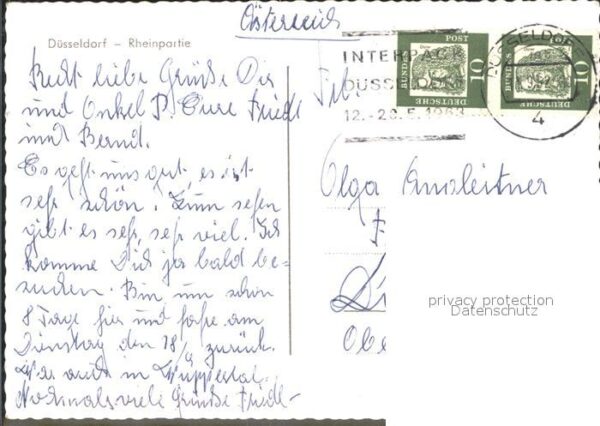 Österreich
Düsseldorf – Rheinpartie
Recht liebe Grüße Dir
und Onkel P. Eure Friedl
und Bernd.
Es geht uns gut, es ist
sehr schön. Zum sehen
gibt es sehr, sehr viel. Ich
komme Dich ja bald be-
suchen. Bin nun schon
8 Tage hier und fahre am
Dienstag den 18/9 zurück.
War auch in Wuppertal.
Nochmals viele Grüße Friedl
INTERPACK
DÜSSELDORF
12.-20.5.1963
DÜSSELDORF
4
DEUTSCHE BUNDESPOST 10
DEUTSCHE BUNDESPOST 10
Frl.
Olga Kunzleitner
privacy protection
Datenschutz